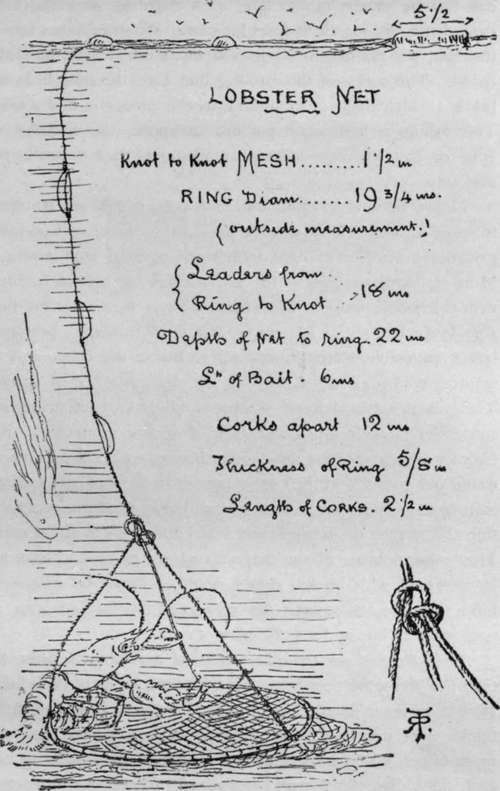 5 1/2
LOBSTER NET
Knot to Knot MESH ........ 1 1/2 in
RING Diam ....... 19 3/4 ins.
(outside measurement.)
Leaders from
Ring to Knot 18 ins
Depth of Net to ring. 22 ins
Lth of Bait. 6 ins
Corks apart 12 ins
Thickness of Ring 5/8 in
Length of CORKS. 2 1/2 in